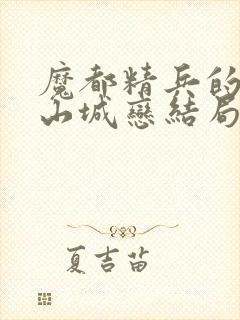 魔都精兵的
山城戀結局
夏吉苗